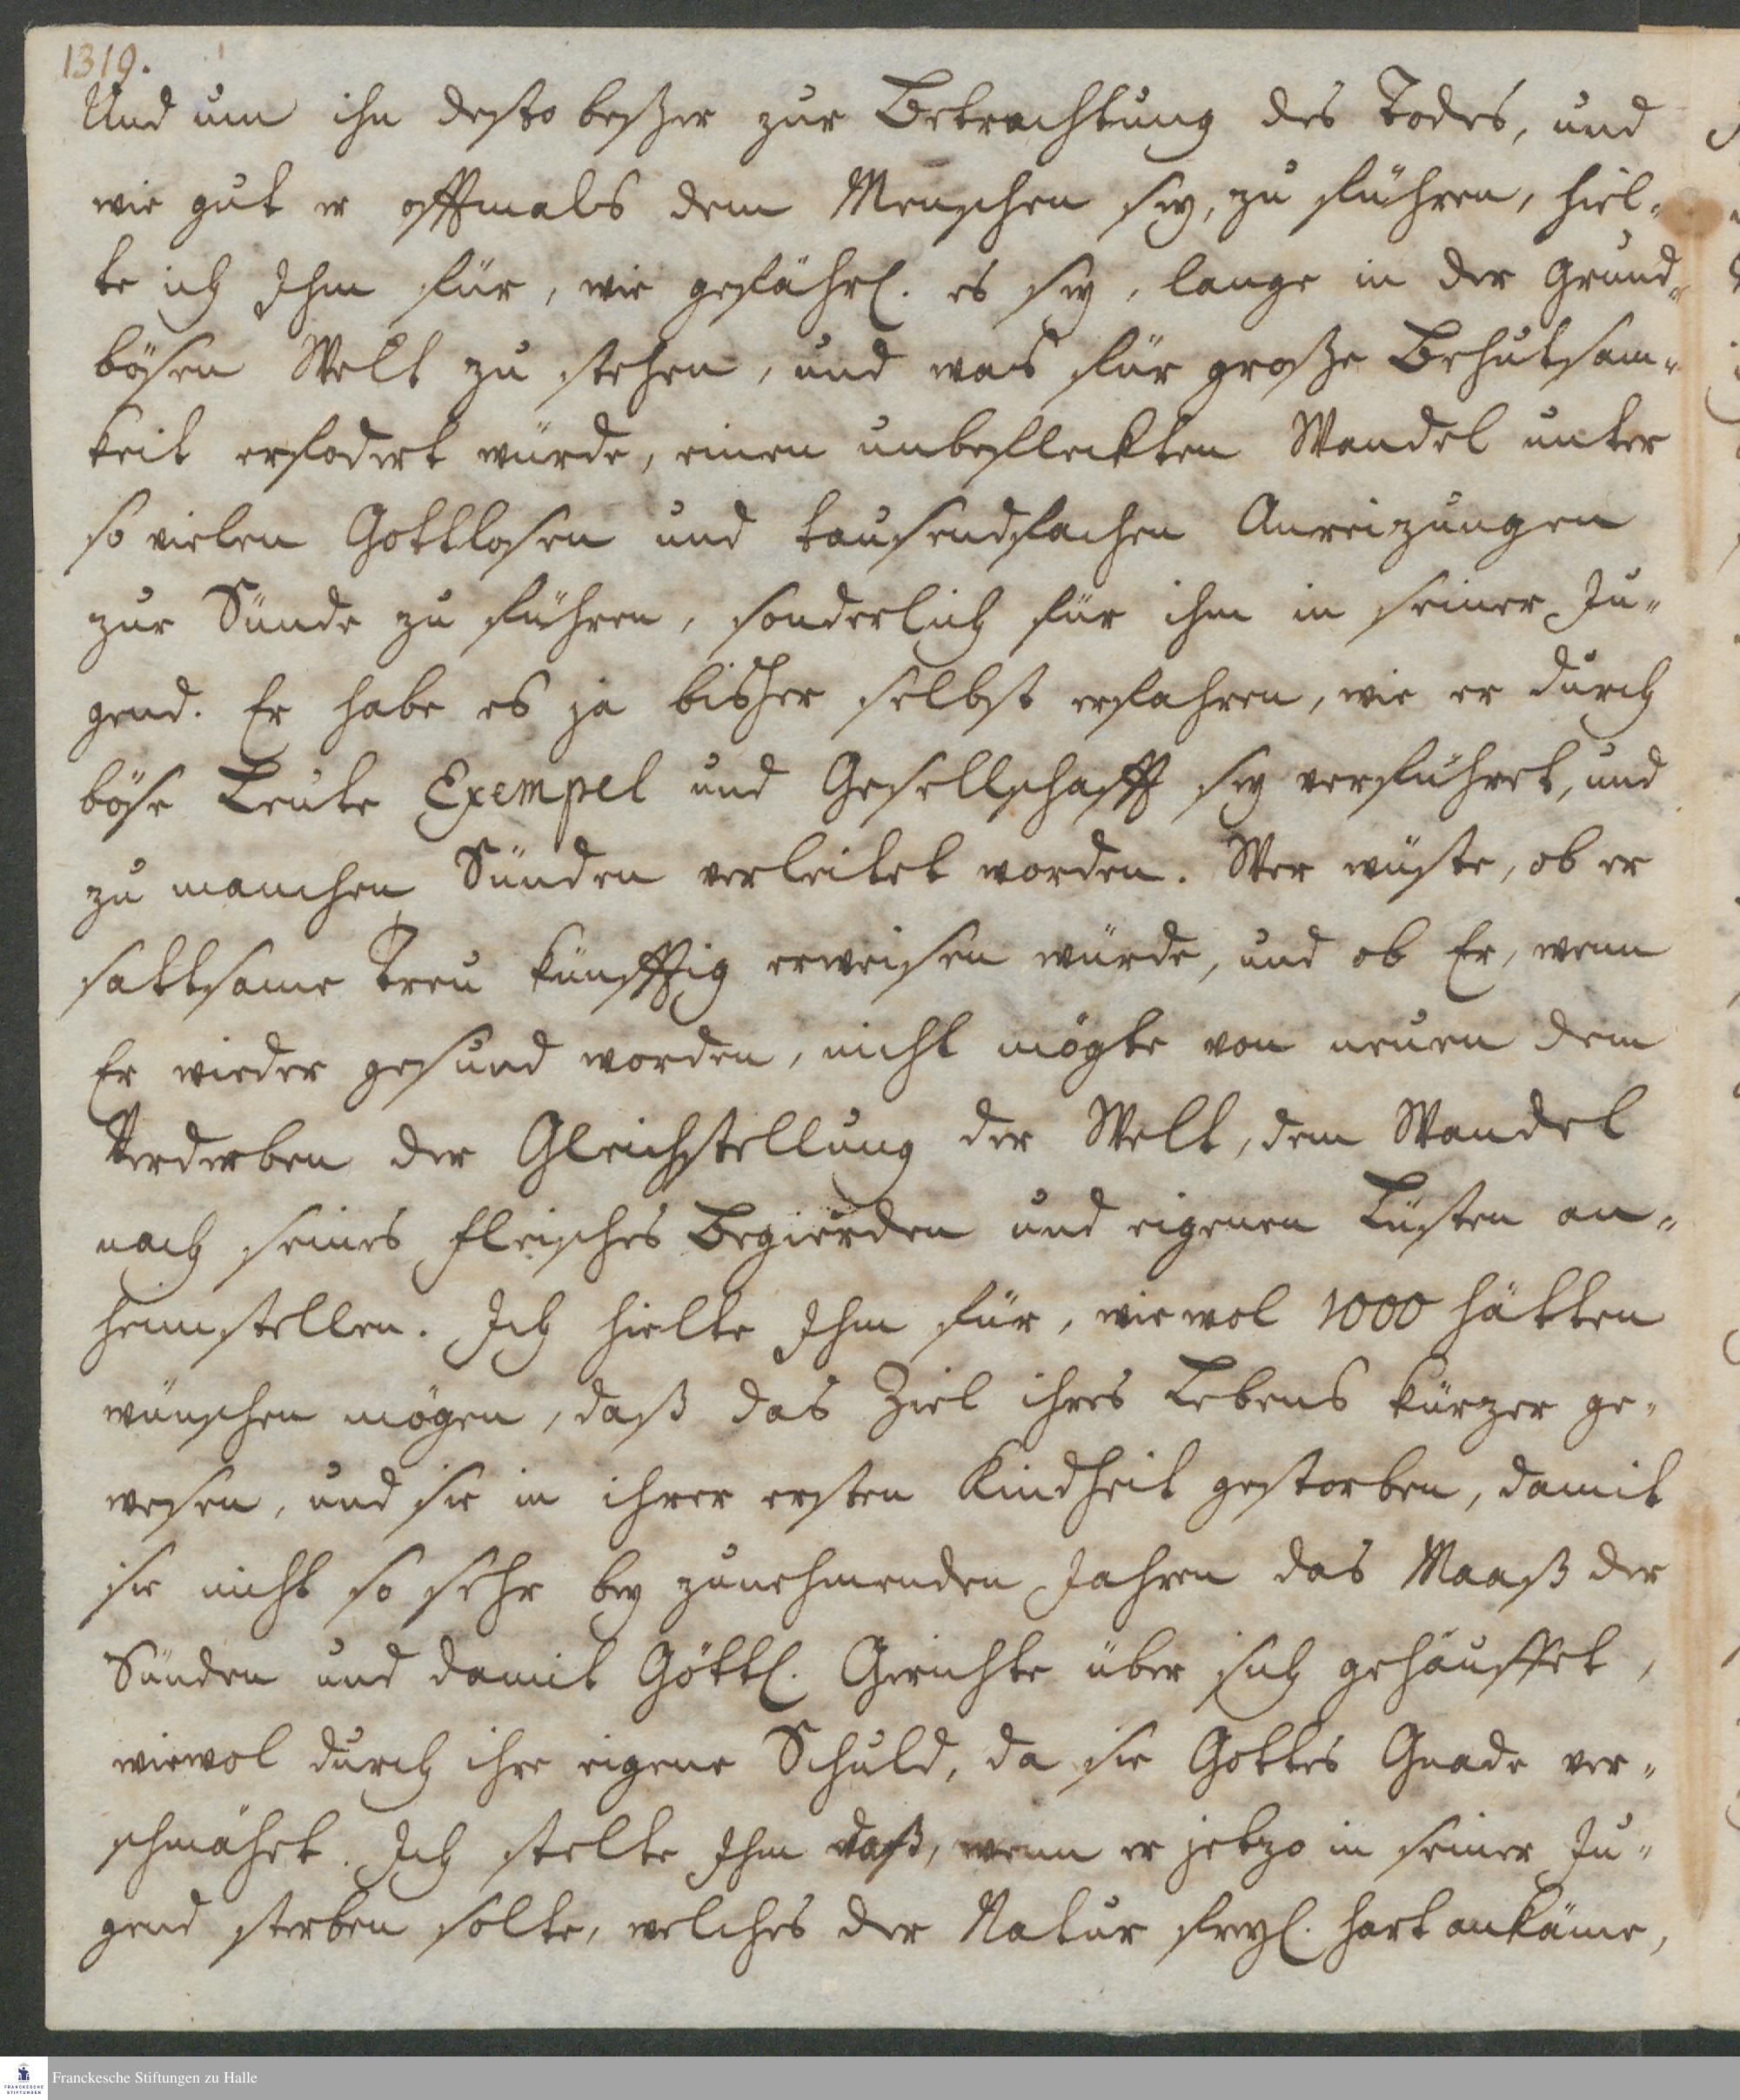 1319.
Und um ihn desto beßer zur Betrachtung des Todes, und
wie gut er offtmals dem Menschen sey, zu führen, hiel-
te ich Ihm für, wie gefährl. es sey, lange in der Grund-
bösen Welt zu stehen, und was für große Behutsam-
keit erfodert würde, einen unbefleckten Wandel unter
so vielen Gottlosen und tausendfachen Anreizungen
zur Sünde zu führen, sonderlich für ihm in seiner Ju-
gend. Er habe es ja bisher selbst erfahren, wie er durch
böse Leute Exempel und Gesellschafft sey verführet, und
zu manchen Sünden verleitet worden. Wer wüste, ob er
sattsame Treu künfftig erweisen würde, und ob Er, wenn
Er wieder gesund worden, nicht mögte von neuen dem
Verderben der Gleichstellung der Welt, dem Wandel
nach seines Fleisches Begierden und eigenen Lüsten an-
heimstellen. Ich hielte Ihm für, wie wol 1000 hätten
wünschen mögen, daß das Ziel ihres Lebens kürzer ge-
wesen, und sie in ihrer ersten Kindheit gestorben, damit
sie nicht so sehr bey zunehmenden Jahren das Maaß der
Sünden und damit Göttl. Gerichte über sich gehäuffet,
wiewol durch ihre eigene Schuld, da sie Gottes Gnade ver-
schmähet. Ich stelte Ihm daß, wenn er jetzo in seiner Ju-
gend sterben solte, welches der Natur freyl. hart ankäme,
Franckesche Stiftungen zu Halle